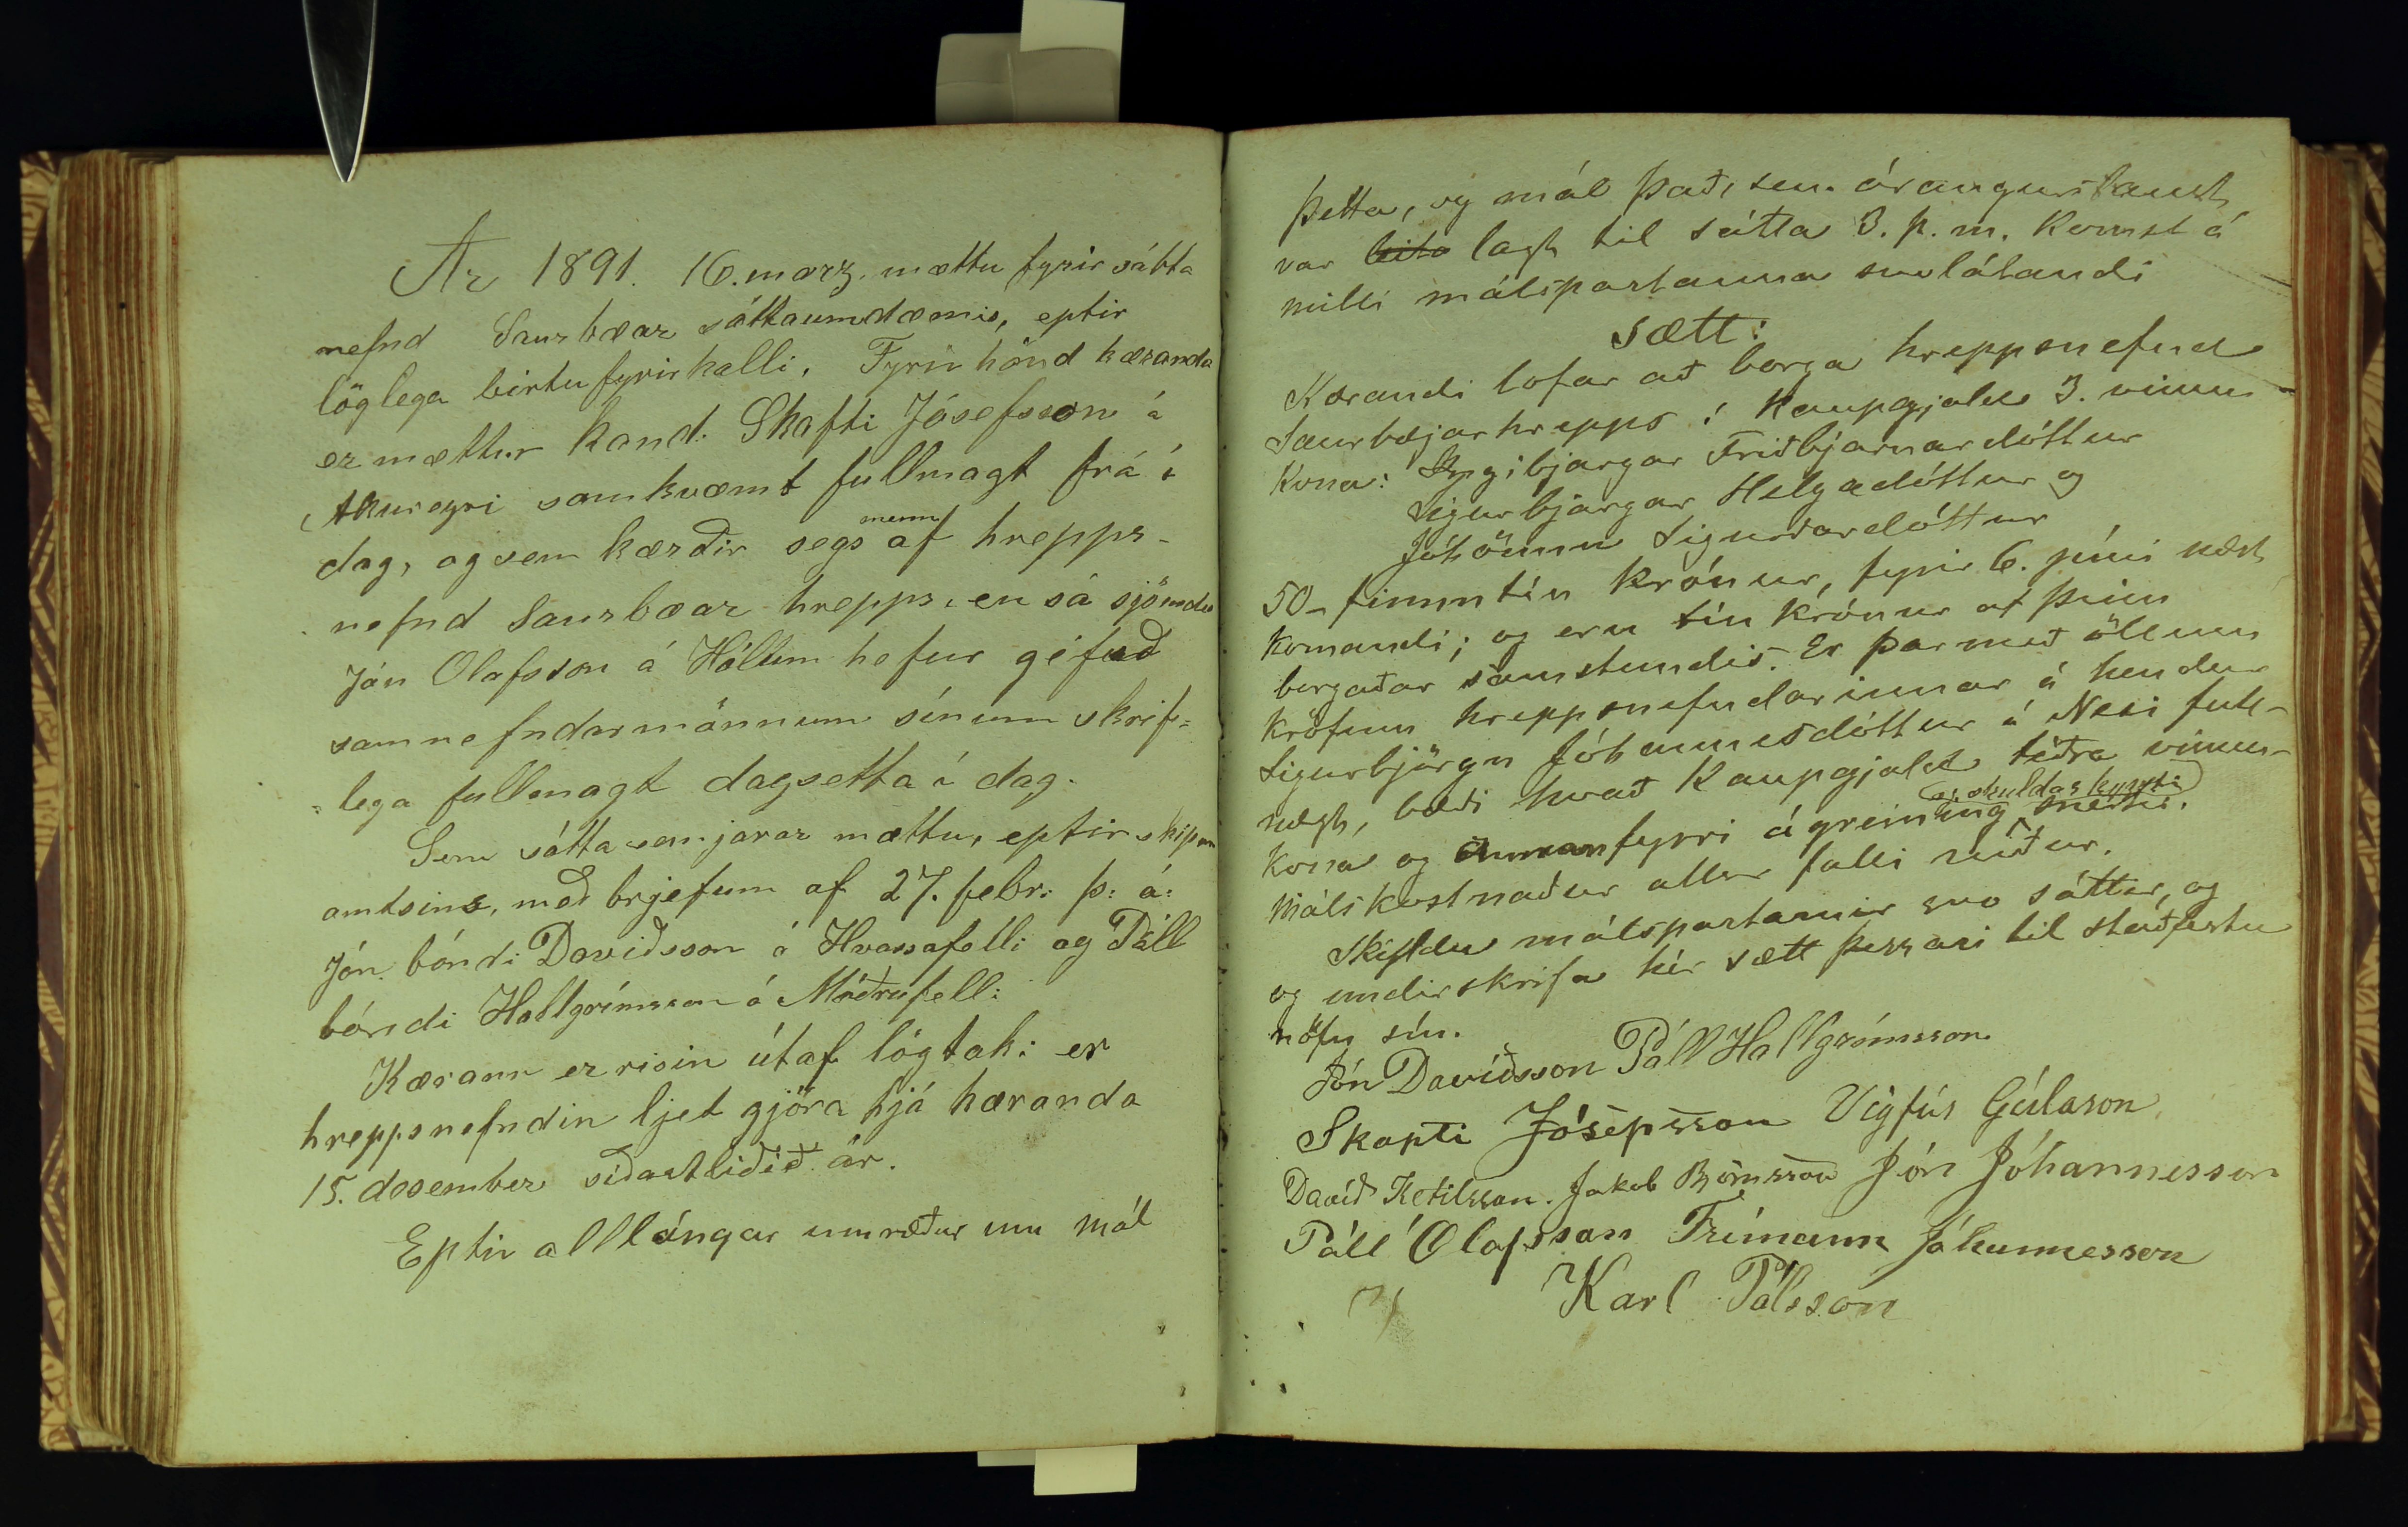 Ár 1891. 16. marz. mættu fyrir sátta
nefnd Saurbæar sáttaumdæmis, eptir
löglega birtu fyrirkalli. Fyrir hönd kæranda
er mættur kand: Skafti Jósefsson á
Akureyri samkvæmt fullmagt frá í
dag, og sem kærðir segs menn af hrepps-
nefnd Saurbæar hrepps, en sá sjöundi
Jón Olafsson á Hólum hefur géfað
samnefndarmönnum sínum skrif=
=lega fullmagt dagsetta í dag.
Sem sáttasemjarar mættu, eptir skipun
amtsins, með brjefum af 27. febr: þ: á:
Jón bóndi Daviðsson á Hvassafelli og Páll
bóndi Hallgrímsson á Möðrufelli
Kærann er risin útaf lögtaki er
hreppsnefndin ljet gjöra hjá kæranda
15. desember síðastliðið ár.
Eptir alllángar umræður um mál
þetta, og mál það, sem árangurslaust
var leita lagt til sátta 3. þ. m. komst á
milli málspartanna svolátandi
Sætt:
Kærandi lofar að borga hreppsnefnd
Saurbæjarhrepps í kaupgjald 3. vinnu
kona: Ingibjargar Friðbjarnardóttur
Sigurbjargar Helgadóttur og
Jóhönnu Sigurðardóttur
50_ fimmtíu krónur, fyrir 6. júní næst
komandi; og eru tíu krónur af þeim
borgaðar samstundis. Er þar með öllum
kröfum hreppsnefndarinnar á hendur
Sigurbjörgu Jóhannesdóttur á Nesi full-
nægt, bæði hvað kaupgjald téðra vinnu-
kona og annan fyrri ágreining er skuldaskypti snertir.
Málskostnaður allur falli niður.
Skyldu málspartarnir svo sáttir, og
og undirskrifa hér sætt þessari til staðfestu
nöfn sín.
Jón Davíðsson Páll Hallgrímsson
Skapti Jósepsson Vigfús Gíslason
Davíð Ketilsson. Jakob Björnsson Jón Jóhannesson
Páll Olafsson Frímann Jóhannesson
Karl Pálsson